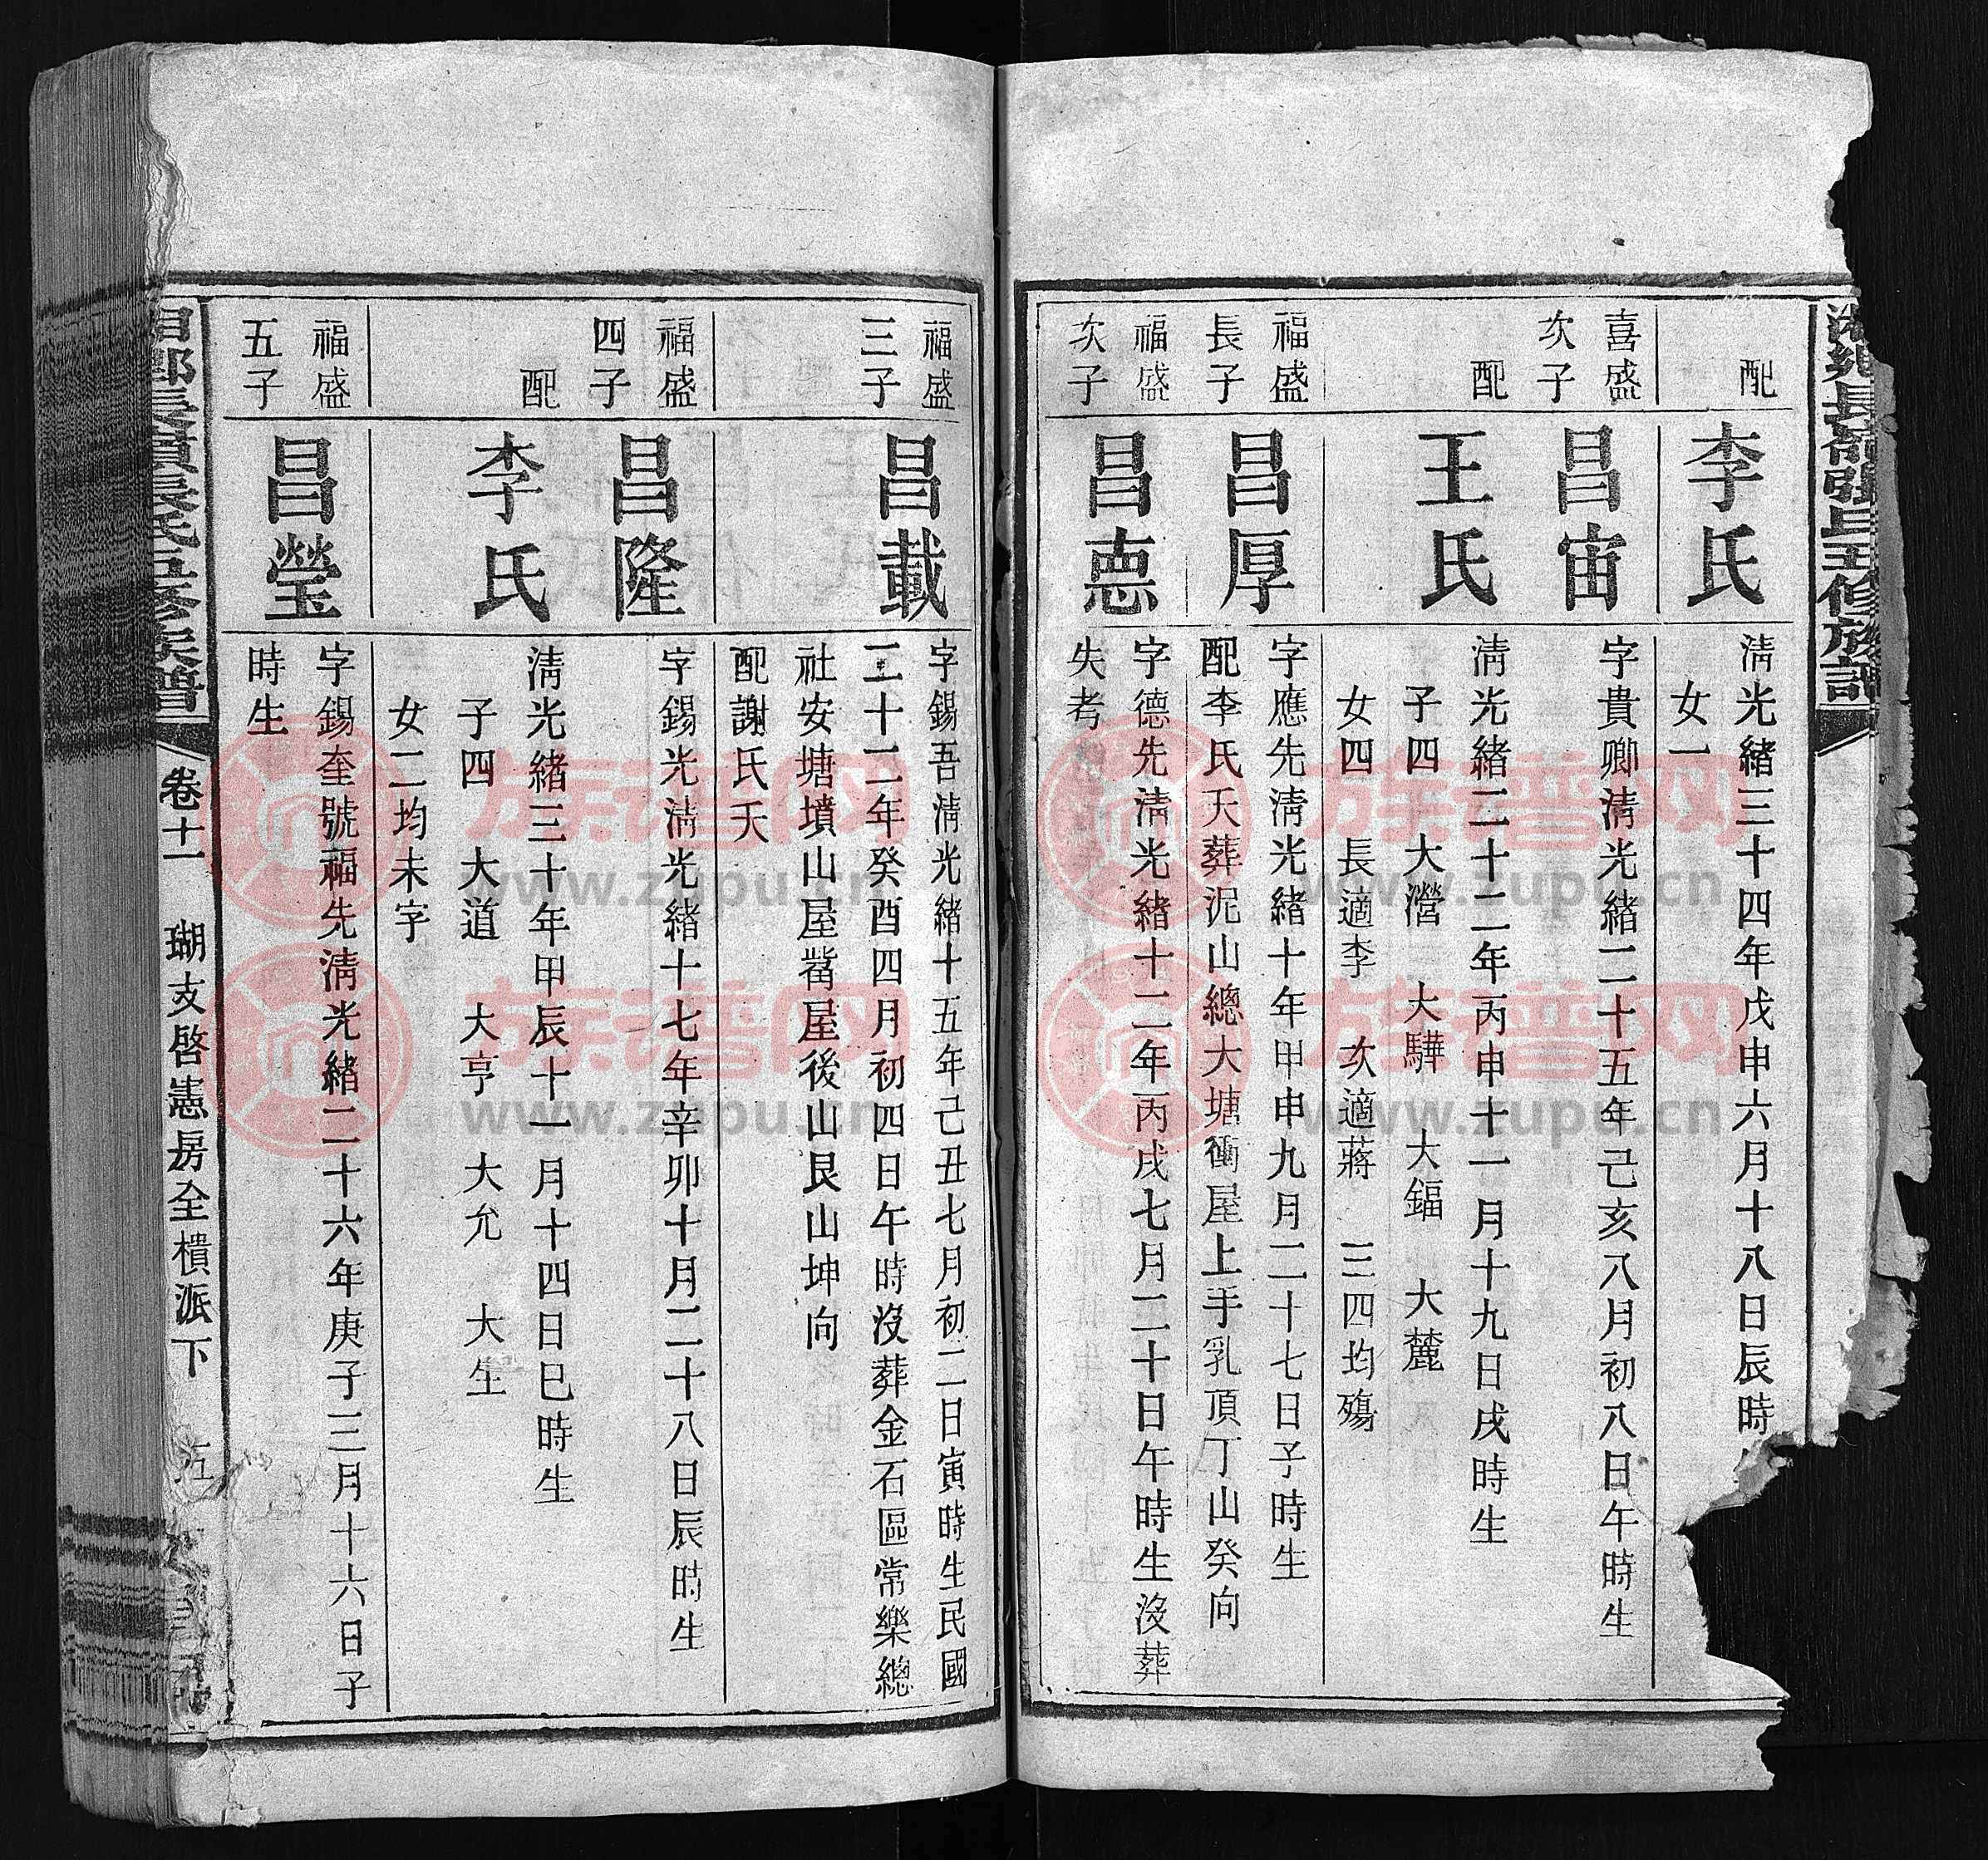 湘鄉長嶺張氏五修族譜
配
李氏
清光緒三十四年戊申六月十八日辰時
女一
喜盛
次子
昌宙
字貴卿清光緒二十五年己亥八月初八日午時生
配
王氏
清光緒二十二年丙申十一月十九日戌時生
子四 大瀯 大驊 大鍢 大麓
女四 長適李 次適蔣 三四均殤
福盛
長子
昌厚
字應先清光緒十年甲申九月二十七日子時生
配李氏夭葬泥山總大塘衝屋上手乳頂丁山癸向
福盛
次子
昌悳
字德先清光緒十二年丙戌七月二十日午時生沒葬
失考
福盛
三子
昌載
字錫吾清光緒十五年己丑七月初二日寅時生民國
二十二年癸酉四月初四日午時沒葬金石區常樂總
社安塘墳山屋嵩屋後山艮山坤向
配謝氏夭
福盛
四子
昌隆
字錫光清光緒十七年辛卯十月二十八日辰時生
配
李氏
清光緒三十年甲辰十一月十四日巳時生
子四 大道 大亨 大允 大生
女二均未字
福盛
五子
昌瑩
字錫奎號福先清光緒二十六年庚子三月十六日子
時生
湘鄉長嶺張氏五修族譜
卷十一 瑚支啓憲房全樻派下
族谱网
www.zupu.cn
族谱网
www.zupu.cn
族谱网
www.zupu.cn
族谱网
www.zupu.cn